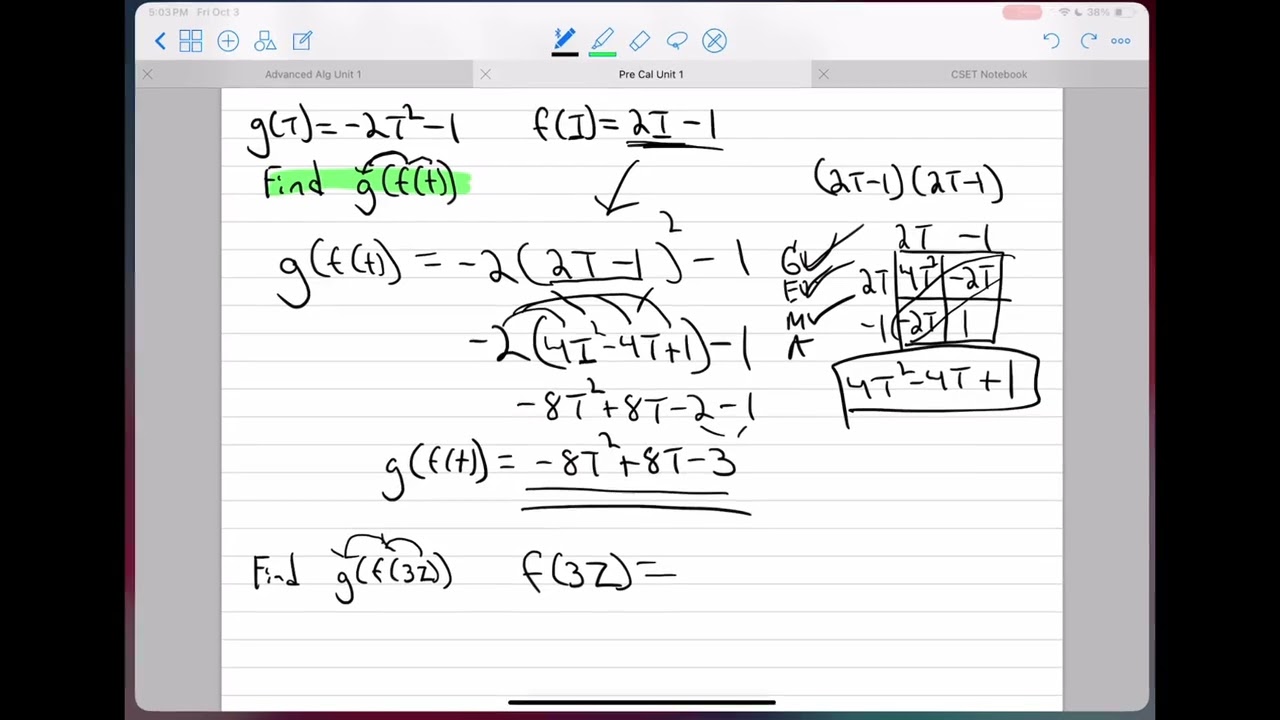 5:03 PM Fri Oct 3
38%
Advanced Alg Unit 1
Pre Cal Unit 1
CSET Notebook
g(T)=-2T²-1 f(I)=2I-1
Find g(f(t))
(2T-1)(2T-1)
g(f(t)) = -2(2T-1)²-1
2T -1
G
E
M
A
2T 4T² -2T
-1 -2T 1
-2(4I²-4T+1)-1
4T²-4T+1
-8T²+8T-2-1
g(f(t)) = -8T²+8T-3
Find g(f(3Z)) f(3Z)=